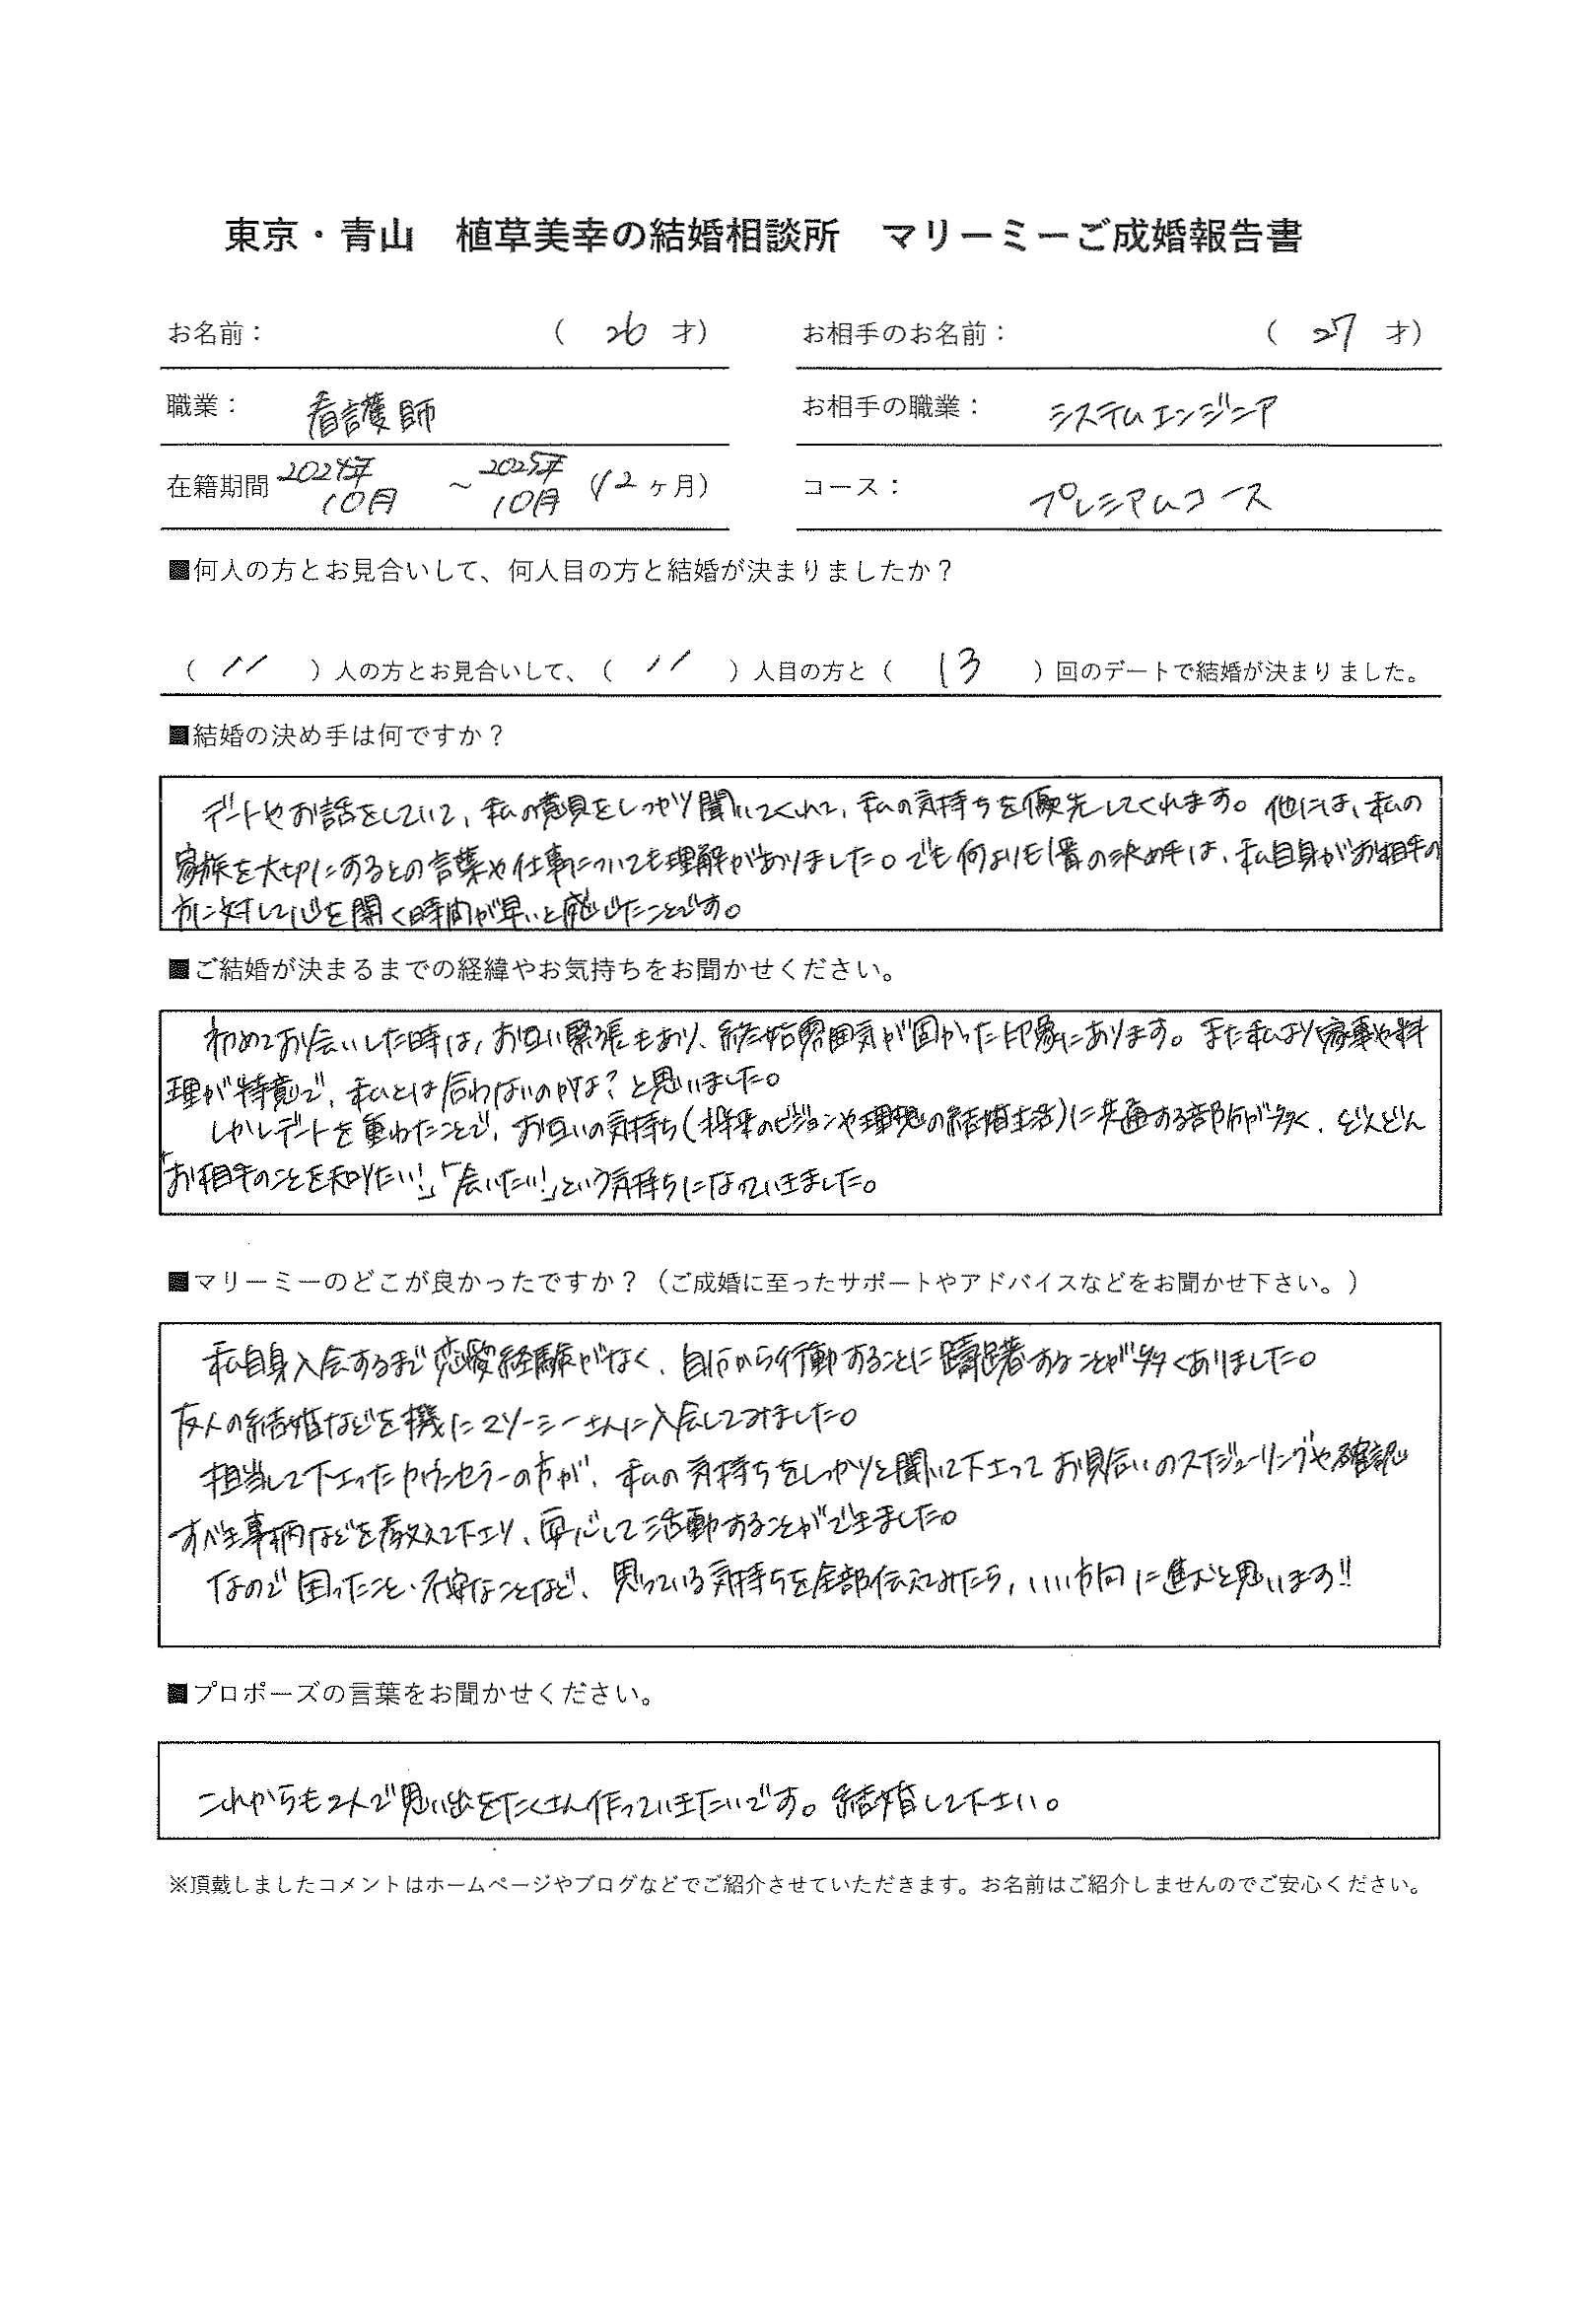 東京・青山　植草美幸の結婚相談所　マリーミーご成婚報告書
お名前：　（　26　才）　お相手のお名前：　（　27　才）
職業：　看護師　お相手の職業：　システムエンジニア
在籍期間　2024年10月　～　2025年10月　（12ヶ月）　コース：　プレミアムコース
■何人の方とお見合いして、何人目の方と結婚が決まりましたか？
（　11　）人の方とお見合いして、（　11　）人目の方と（　13　）回のデートで結婚が決まりました。
■結婚の決め手は何ですか？
デートやお話をしていて、私の意見をしっかり聞いてくれて、私の気持ちを優先してくれます。他には、私の
家族を大切にするとの言葉や仕事についても理解がありました。でも何よりも1番の決め手は、私自身がお相手の
方に対して心を開く時間が早いと感じたことです。
■ご結婚が決まるまでの経緯やお気持ちをお聞かせください。
初めてお会いした時は、お互い緊張もあり、終始雰囲気が固かった印象にあります。また私より家事や料
理が得意で、私とは合わないのかな？と思いました。
しかしデートを重ねたことで、お互いの気持ち（将来のビジョンや理想の結婚生活）に共通する部分が多く、どんどん
「お相手のことを知りたい！」「会いたい！」という気持ちになっていきました。
■マリーミーのどこが良かったですか？（ご成婚に至ったサポートやアドバイスなどをお聞かせ下さい。）
私自身入会するまで恋愛経験がなく、自分から行動することに躊躇することが多くありました。
友人の結婚などを機にマリーミーさんに入会してみました。
担当して下さったカウンセラーの方が、私の気持ちをしっかりと聞いて下さってお見合いのスケジューリングや確認
すべき事柄などを教えて下さり、安心して活動することができました。
なので困ったこと・不安なことなど、思っている気持ちを全部伝えてみたら、いい方向に進むと思います!!
■プロポーズの言葉をお聞かせください。
これからも2人で思い出をたくさん作っていきたいです。結婚して下さい。
※頂戴しましたコメントはホームページやブログなどでご紹介させていただきます。お名前はご紹介しませんのでご安心ください。